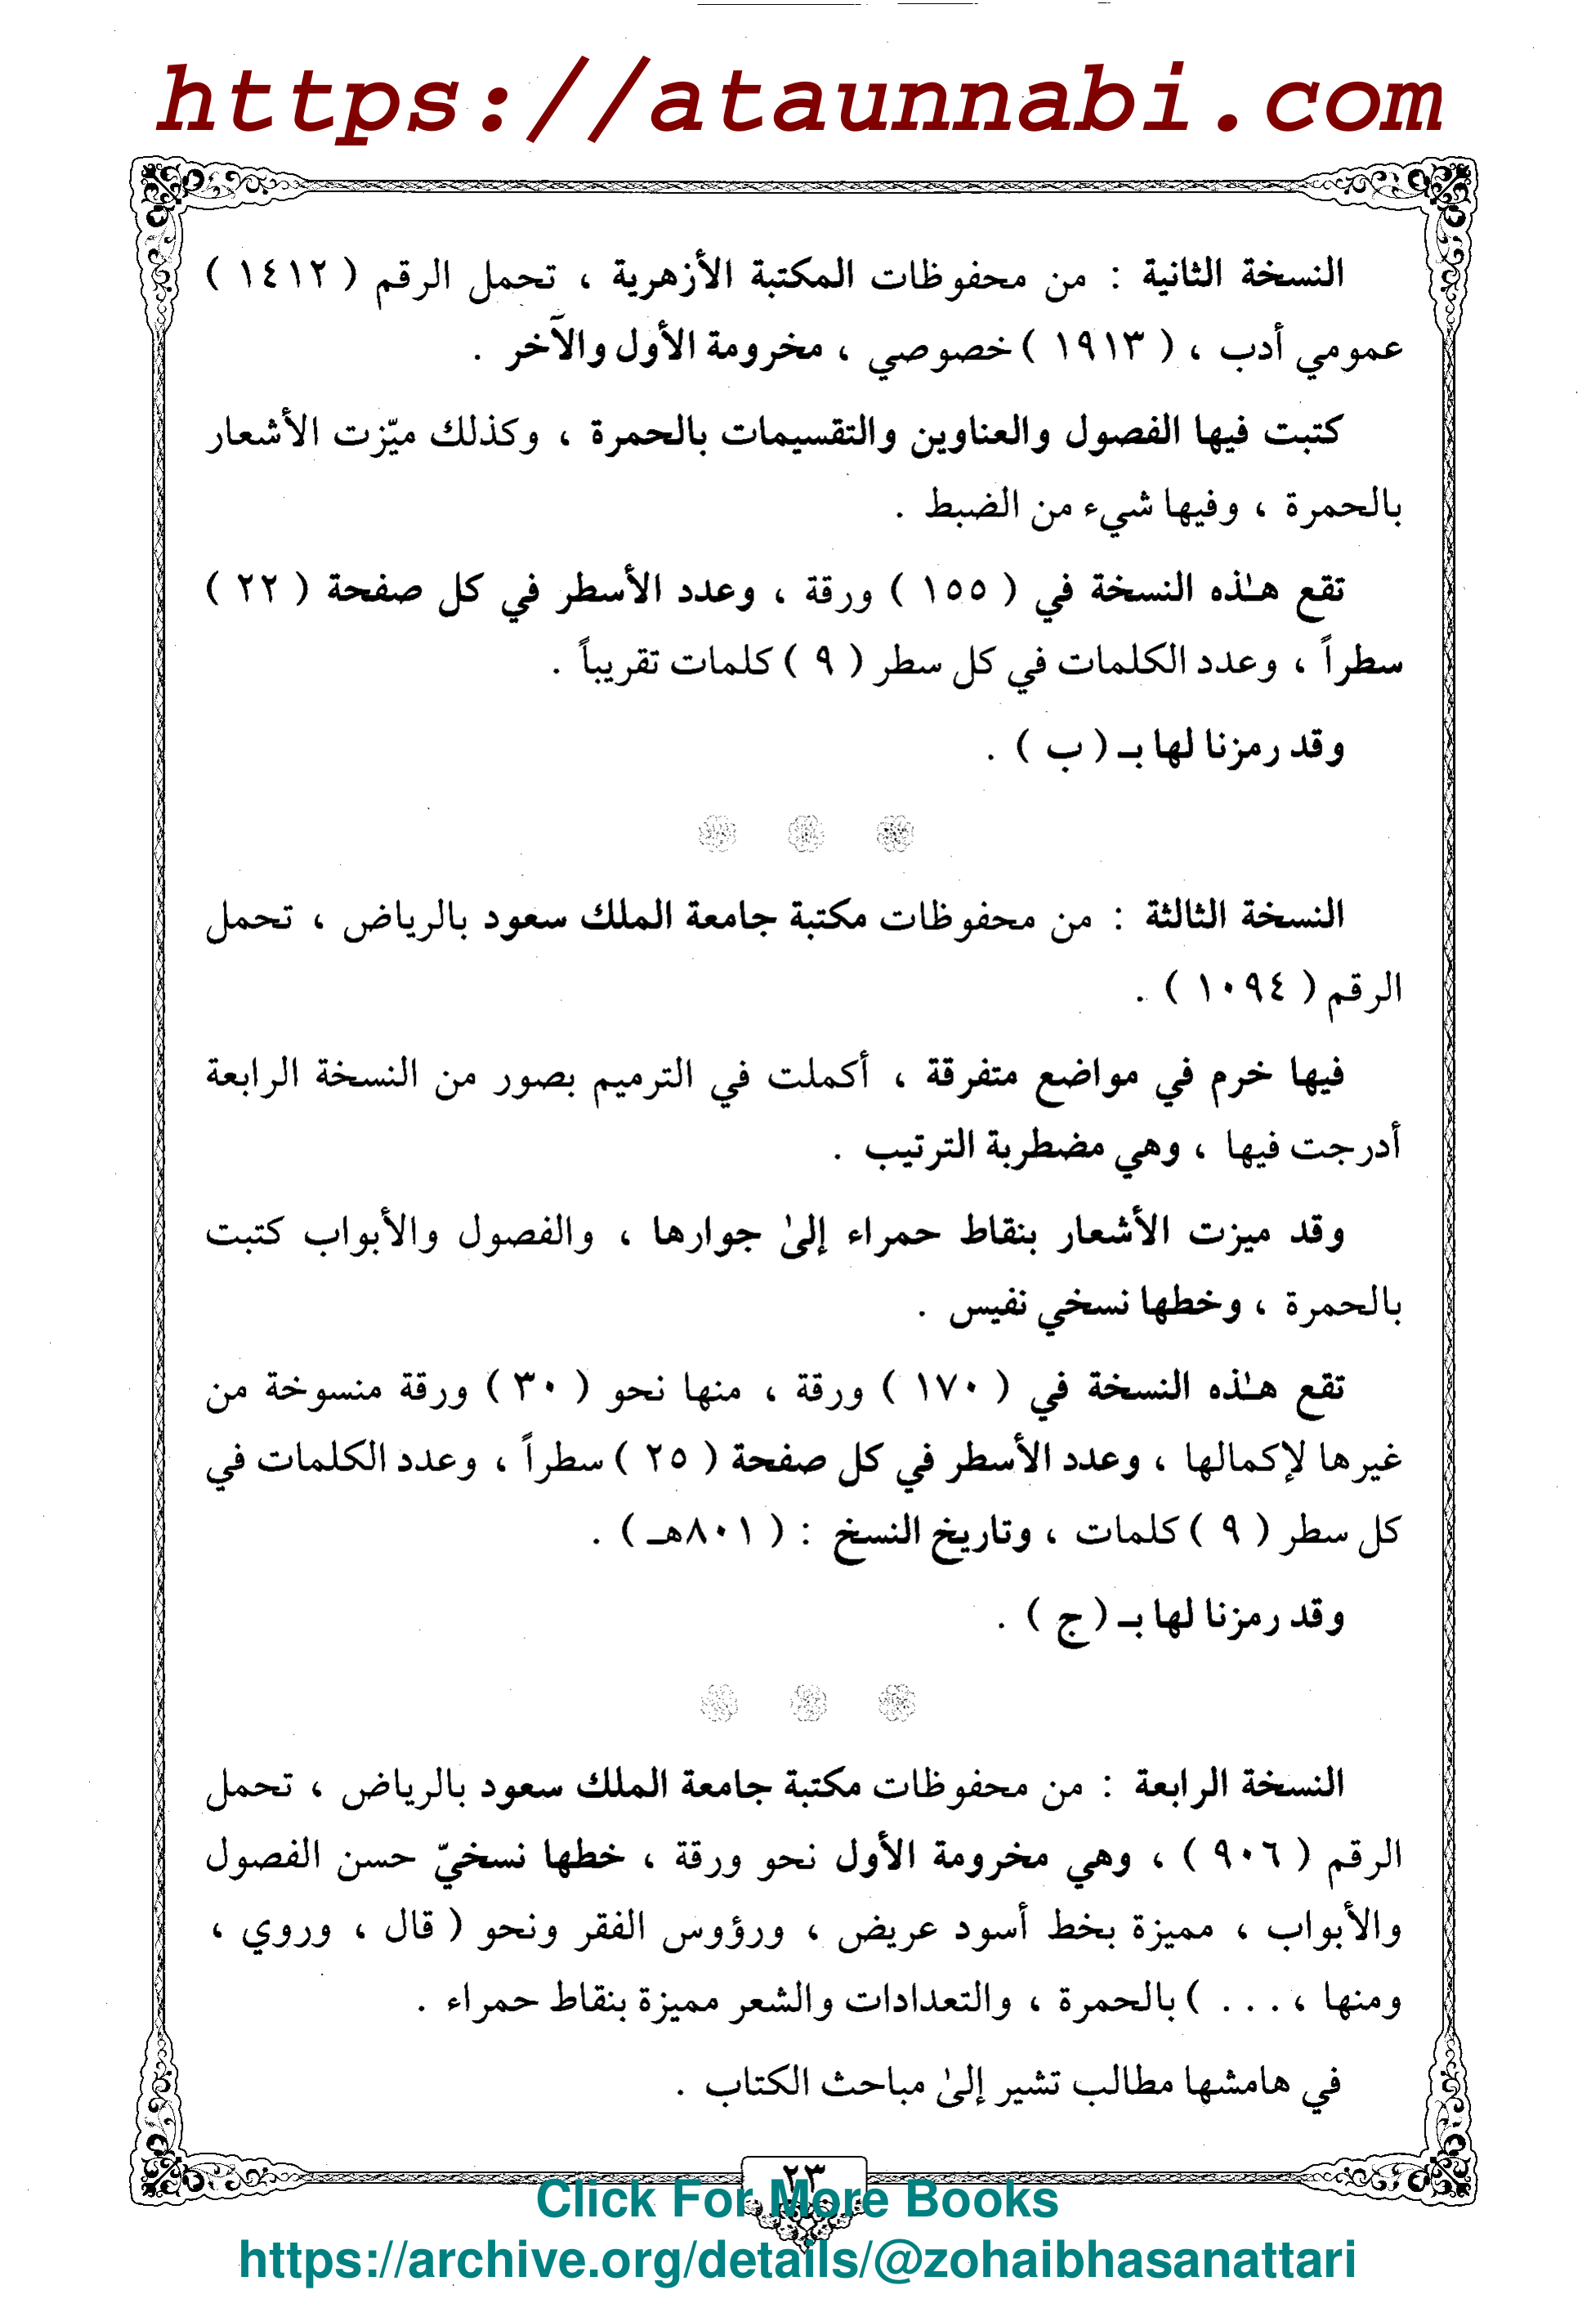 https://ataunnabi.com
النسخة الثانية : من محفوظات المكتبة الأزهرية ، تحمل الرقم ( ١٤١٢ )
عمومي أدب ، ( ١٩١٣ ) خصوصي ، مخرومة الأول والآخر .
كتبت فيها الفصول والعناوين والتقسيمات بالحمرة ، وكذلك ميّزت الأشعار
بالحمرة ، وفيها شيء من الضبط .
تقع هـٰذه النسخة في ( ١٥٥ ) ورقة ، وعدد الأسطر في كل صفحة ( ٢٢ )
سطراً ، وعدد الكلمات في كل سطر ( ٩ ) كلمات تقريباً .
وقد رمزنا لها بـ ( ب ) .
النسخة الثالثة : من محفوظات مكتبة جامعة الملك سعود بالرياض ، تحمل
الرقم ( ١٠٩٤ ) .
فيها خرم في مواضع متفرقة ، أكملت في الترميم بصور من النسخة الرابعة
أدرجت فيها ، وهي مضطربة الترتيب .
وقد ميزت الأشعار بنقاط حمراء إلىٰ جوارها ، والفصول والأبواب كتبت
بالحمرة ، وخطها نسخي نفيس .
تقع هـٰذه النسخة في ( ١٧٠ ) ورقة ، منها نحو ( ٣٠ ) ورقة منسوخة من
غيرها لإكمالها ، وعدد الأسطر في كل صفحة ( ٢٥ ) سطراً ، وعدد الكلمات في
كل سطر ( ٩ ) كلمات ، وتاريخ النسخ : ( ٨٠١هـ ) .
وقد رمزنا لها بـ ( ج ) .
النسخة الرابعة : من محفوظات مكتبة جامعة الملك سعود بالرياض ، تحمل
الرقم ( ٩٠٦ ) ، وهي مخرومة الأول نحو ورقة ، خطها نسخيّ حسن الفصول
والأبواب ، مميزة بخط أسود عريض ، ورؤوس الفقر ونحو ( قال ، وروي ،
ومنها ، . . . ) بالحمرة ، والتعدادات والشعر مميزة بنقاط حمراء .
في هامشها مطالب تشير إلىٰ مباحث الكتاب .
٢٣
Click For More Books
https://archive.org/details/@zohaibhasanattari